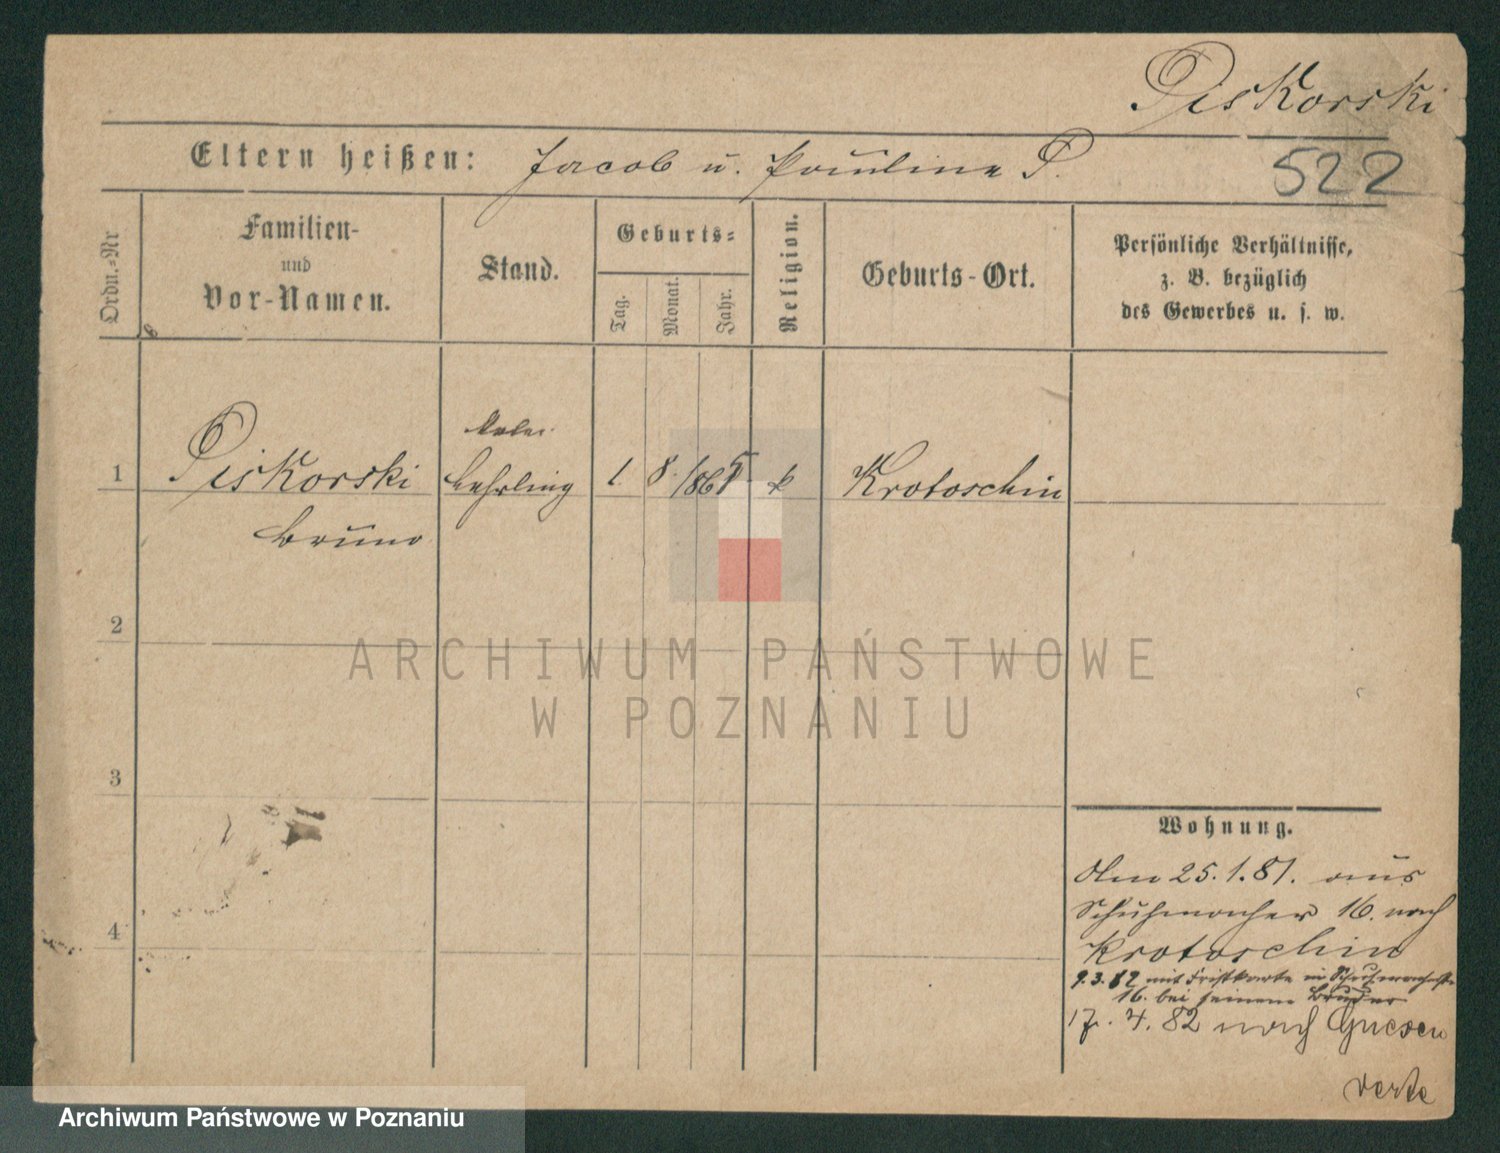 Piskorski
Eltern heißen: Jacob u. Pauline P.
522
Ordn.-Nr
Familien-
und
Vor-Namen.
Stand.
Geburts-
Tag.
Monat.
Jahr.
Religion.
Geburts-Ort.
Persönliche Verhältnisse,
z. B. bezüglich
des Gewerbes u. s. w.
Maler
1 Piskorski Lehrling 1 8 1865 k Krotoschin
Bruno
2
ARCHIWUM PAŃSTWOWE
W POZNANIU
3
4
Wohnung.
Am 25.1.81. aus
Schuhmacher 16. nach
Krotoschin
9.3.82 mit Fristkarte in Schuhmacherstr
16. bei seinem Bruder
17. 4. 82 nach Gnesen
verte
Archiwum Państwowe w Poznaniu